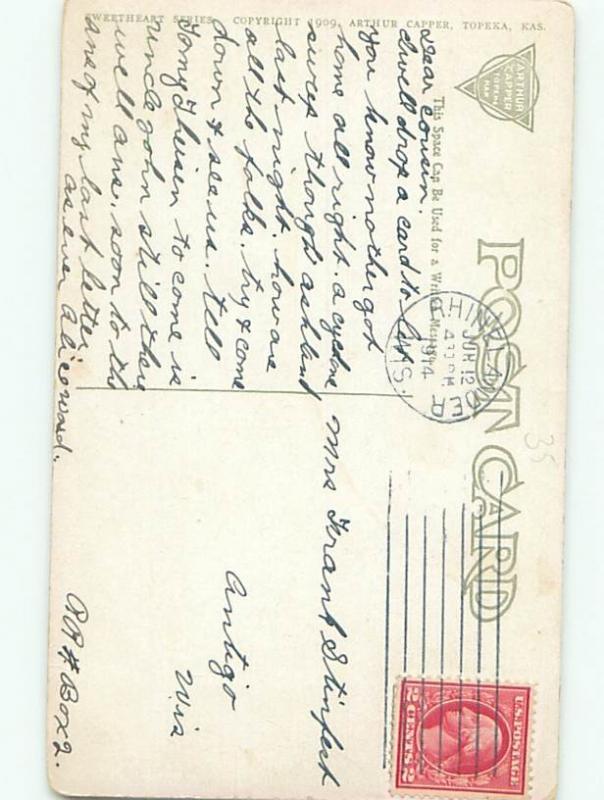 SWEETHEART SERIES. COPYRIGHT 1909, ARTHUR CAPPER, TOPEKA, KAS.
ARTHUR
CAPPER
TOPEKA
KAN
POST CARD
This Space Can Be Used for a Written Message
Dear Cousin.
will drop a card to let
you know mother got
home all right. a cyclone
swep though ashland
last night. how are
all the folks. try & come
down & see us. tell
Tomy Theisen to come is
uncle John still there
well ans. soon to the
ans of my last letter
as ever Alice ward.
JUN 12
4 30 PM
1914
WIS.
Mrs Frank
Antigo
Wis
RR # Box 2.
35
U.S. POSTAGE
2 CENTS 2